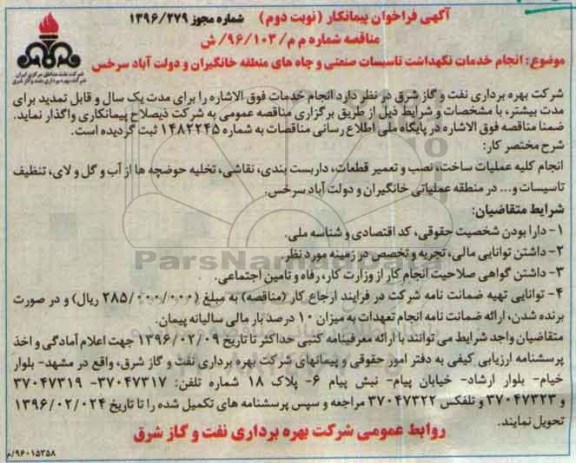 آگهی فراخوان پیمانکار (نوبت دوم) شماره مجوز ۱۳۹۶/۲۷۹
مناقصه شماره م م/۹۶/۱۰۳/ ش
شرکت نفت مناطق مرکزی ایران
شرکت بهره برداری نفت و گاز شرق
موضوع: انجام خدمات نگهداشت تاسیسات صنعتی و چاه های منطقه خانگیران و دولت آباد سرخس
شرکت بهره برداری نفت و گاز شرق در نظر دارد انجام خدمات فوق الاشاره را برای مدت یک سال و قابل تمدید برای
مدت بیشتر، با مشخصات و شرایط ذیل از طریق برگزاری مناقصه عمومی به شرکت ذیصلاح پیمانکاری واگذار نماید.
ضمنا مناقصه فوق الاشاره در پایگاه ملی اطلاع رسانی مناقصات به شماره ۱۴۸۲۲۴۵ ثبت گردیده است.
شرح مختصر کار:
انجام کلیه عملیات ساخت، نصب و تعمیر قطعات، داربست بندی، نقاشی، تخلیه حوضچه ها از آب و گل و لای، تنظیف
تاسیسات و... در منطقه عملیاتی خانگیران و دولت آباد سرخس.
شرایط متقاضیان:
۱- دارا بودن شخصیت حقوقی، کد اقتصادی و شناسه ملی.
۲- داشتن توانایی مالی، تجربه و تخصص در زمینه مورد نظر.
۳- داشتن گواهی صلاحیت انجام کار از وزارت کار، رفاه و تامین اجتماعی.
۴- توانایی تهیه ضمانت نامه شرکت در فرایند ارجاع کار (مناقصه) به مبلغ (۲۸۵/۰۰۰/۰۰۰ ریال) و در صورت
برنده شدن، ارائه ضمانت نامه انجام تعهدات به میزان ۱۰ درصد بار مالی سالیانه پیمان.
متقاضیان واجد شرایط می توانند با ارائه معرفینامه کتبی حداکثر تا تاریخ ۱۳۹۶/۰۲/۰۹ جهت اعلام آمادگی و اخذ
پرسشنامه ارزیابی کیفی به دفتر امور حقوقی و پیمانهای شرکت بهره برداری نفت و گاز شرق، واقع در مشهد- بلوار
خیام- بلوار ارشاد- خیابان پیام- نبش پیام ۶- پلاک ۱۸ شماره تلفن: ۳۷۰۴۷۳۱۷- ۳۷۰۴۷۳۱۹
و ۳۷۰۴۷۳۲۳ و تلفکس ۳۷۰۴۷۳۲۲ مراجعه و سپس پرسشنامه های تکمیل شده را تا تاریخ ۱۳۹۶/۰۲/۰۲۴
تحویل نمایند.
روابط عمومی شرکت بهره برداری نفت و گاز شرق
۹۶۰۱۵۳۵۸/م